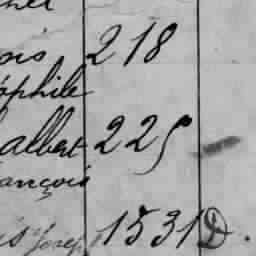 ois 218
óphile
albert 225
ançois
is Josep 1531 D.